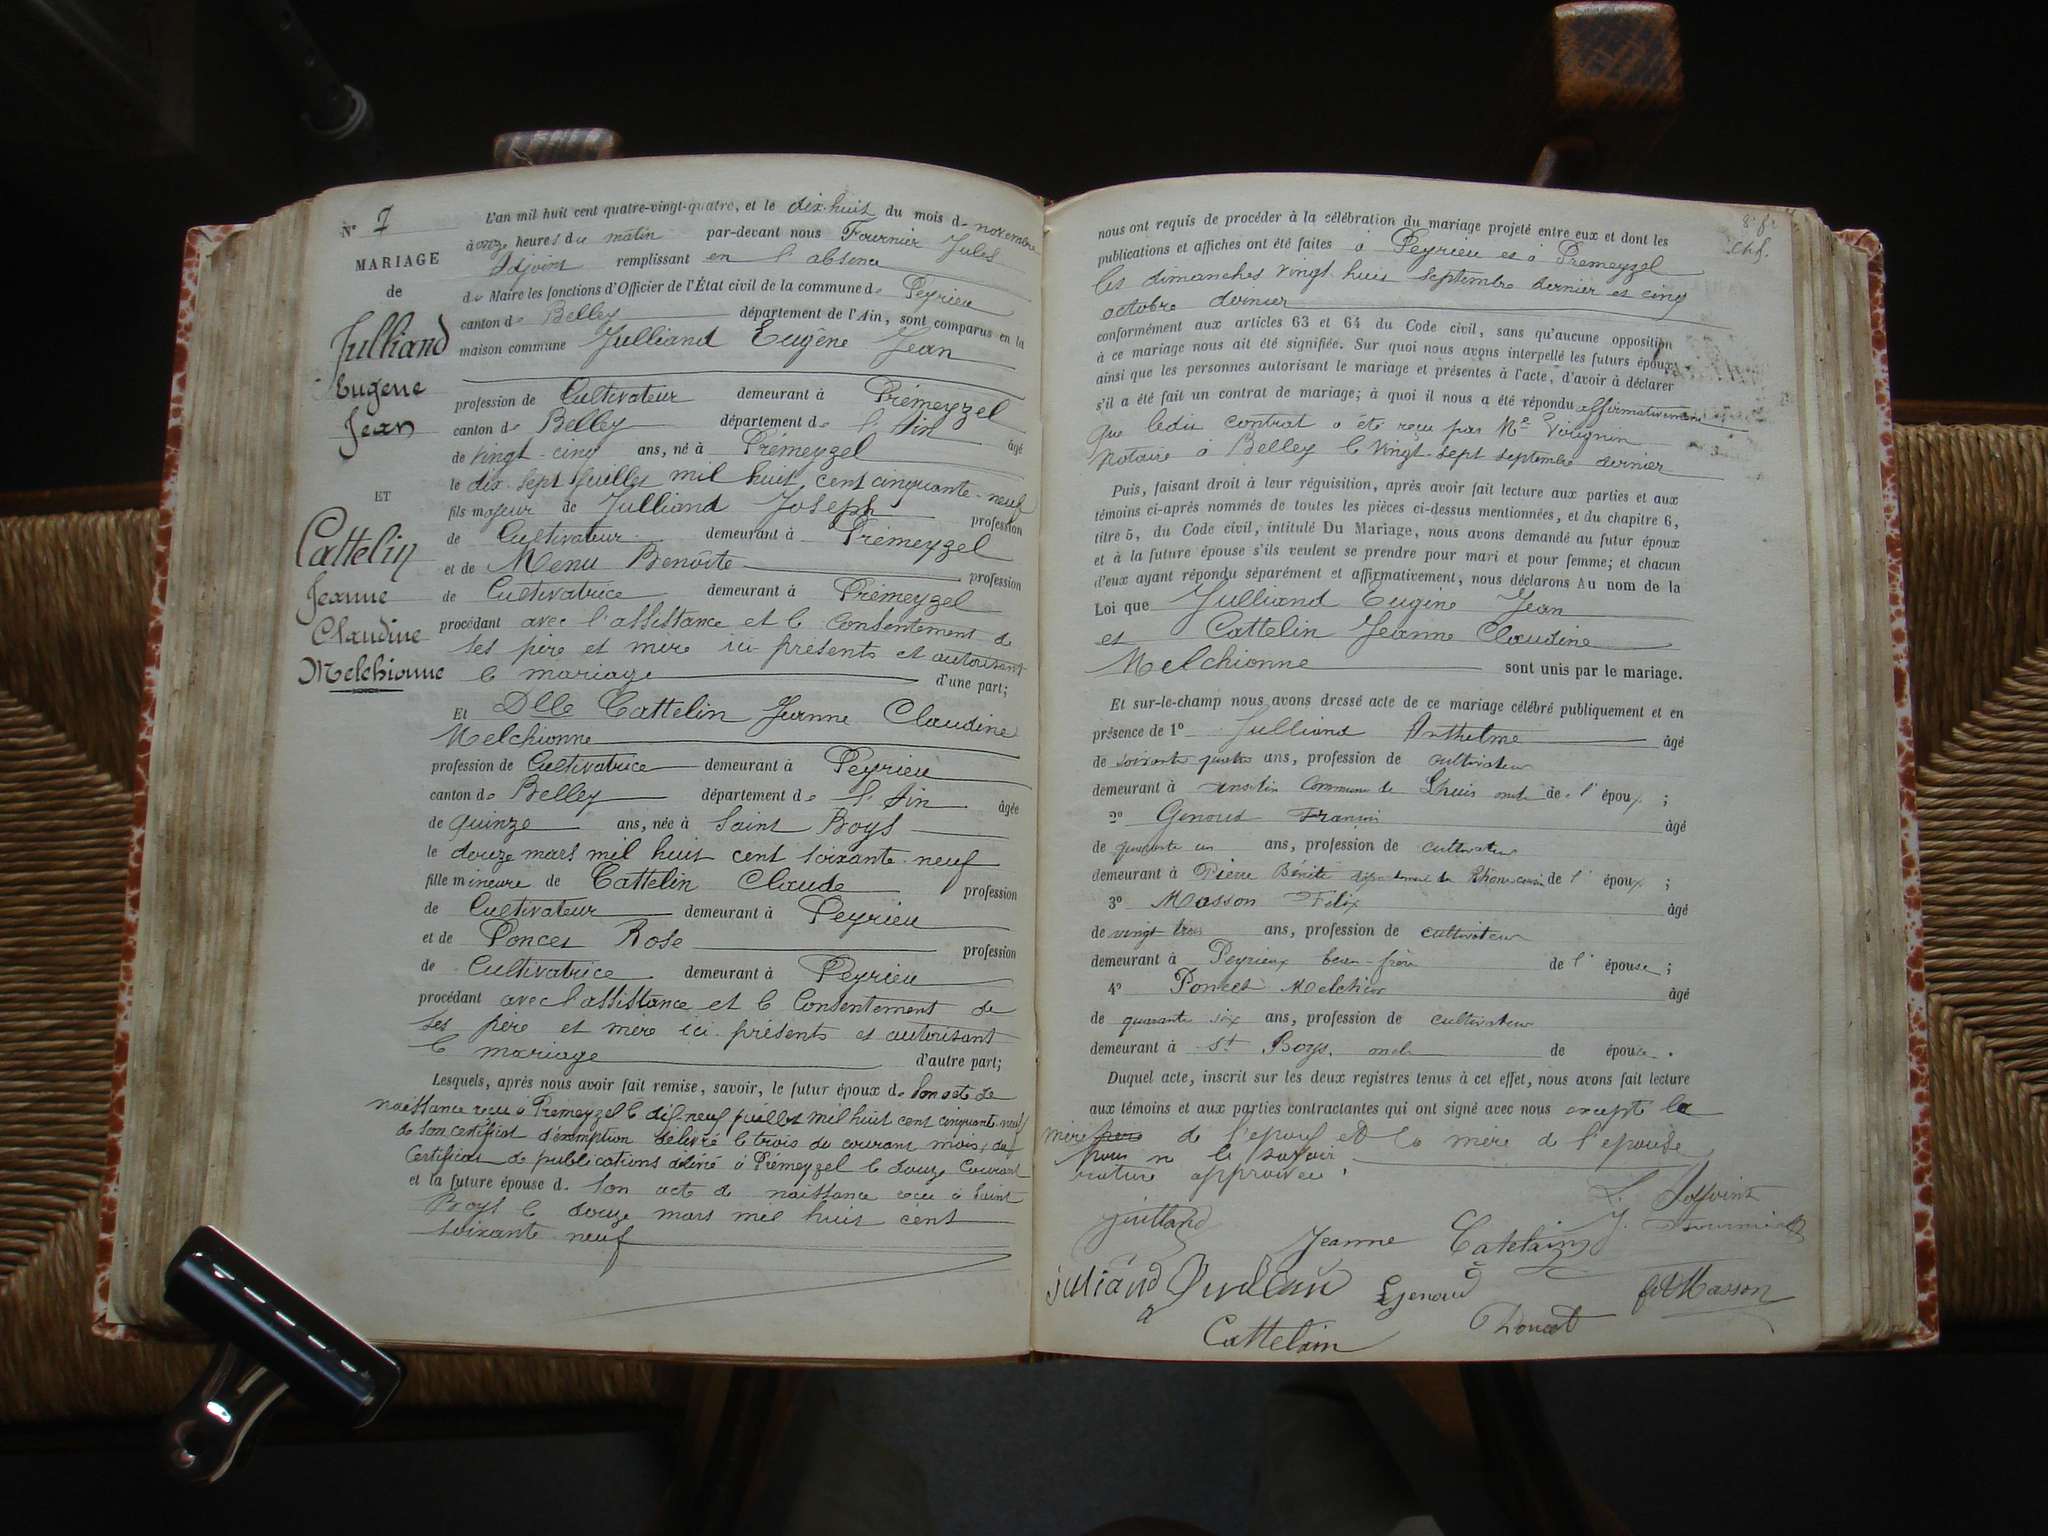 N° 7
MARIAGE
de
Julliand
Eugène
Jean
ET
Cattelin
Jeanne
Claudine
Melchionne
L'an mil huit cent quatre-vingt-quatre, et le dix-huit du mois de novembre
à onze heures du matin par-devant nous Fournier Jules
Adjoint remplissant en l'absence
de Maire les fonctions d'Officier de l'État civil de la commune de Peyrieu
canton de Belley département de l'Ain, sont comparus en la
maison commune Julliand Eugène Jean
profession de Cultivateur demeurant à Prémeyzel
canton de Belley département de l'Ain âgé
de vingt-cinq ans, né à Prémeyzel
le dix-sept juillet mil huit cent cinquante-neuf
fils majeur de Julliand Joseph profession
de Cultivateur demeurant à Prémeyzel
et de Menu Benoîte profession
de Cultivatrice demeurant à Prémeyzel
procédant avec l'assistance et le consentement de
ses père et mère ici présents et autorisant
le mariage d'une part;
Et Dlle Cattelin Jeanne Claudine
Melchionne
profession de Cultivatrice demeurant à Peyrieu
canton de Belley département de l'Ain âgée
de quinze ans, née à Saint Boys
le douze mars mil huit cent soixante-neuf
fille mineure de Cattelin Claude profession
de Cultivateur demeurant à Peyrieu
et de Poncet Rose profession
de Cultivatrice demeurant à Peyrieu
procédant avec l'assistance et le consentement de
ses père et mère ici présents et autorisant
le mariage d'autre part;
Lesquels, après nous avoir fait remise, savoir, le futur époux de son acte de
naissance reçu à Prémeyzel le dix-neuf juillet mil huit cent cinquante-neuf
de son certificat d'exemption délivré le trois du courant mois, du
certificat de publications délivré à Prémeyzel le douze courant
et la future épouse d. son acte de naissance reçu à Saint
Boys le douze mars mil huit cent
soixante-neuf
nous ont requis de procéder à la célébration du mariage projeté entre eux et dont les
publications et affiches ont été faites à Peyrieu et à Prémeyzel
les dimanches vingt-huit septembre dernier et cinq
octobre dernier
conformément aux articles 63 et 64 du Code civil, sans qu'aucune opposition
à ce mariage nous ait été signifiée. Sur quoi nous avons interpellé les futurs époux,
ainsi que les personnes autorisant le mariage et présentes à l'acte, d'avoir à déclarer
s'il a été fait un contrat de mariage; à quoi il nous a été répondu affirmativement
que ledit contrat a été reçu par Me
notaire à Belley le vingt-sept septembre dernier
Puis, faisant droit à leur réquisition, après avoir fait lecture aux parties et aux
témoins ci-après nommés de toutes les pièces ci-dessus mentionnées, et du chapitre 6,
titre 5, du Code civil, intitulé Du Mariage, nous avons demandé au futur époux
et à la future épouse s'ils veulent se prendre pour mari et pour femme; et chacun
d'eux ayant répondu séparément et affirmativement, nous déclarons Au nom de la
Loi que Julliand Eugène Jean
et Cattelin Jeanne Claudine
Melchionne sont unis par le mariage.
Et sur-le-champ nous avons dressé acte de ce mariage célébré publiquement et en
présence de 1° Julliand Anthelme âgé
de soixante quatre ans, profession de cultivateur
demeurant à commune de Lhuis oncle de l'époux;
2° Genoud âgé
de quarante un ans, profession de cultivateur
demeurant à Pierre Bénite département du Rhône cousin de l'époux;
3° Masson Félix âgé
de vingt trois ans, profession de cultivateur
demeurant à Peyrieux beau-frère de l'épouse;
4° Poncet Melchior âgé
de quarante six ans, profession de cultivateur
demeurant à St Boys, oncle de épouse.
Duquel acte, inscrit sur les deux registres tenus à cet effet, nous avons fait lecture
aux témoins et aux parties contractantes qui ont signé avec nous excepté la
mère de l'époux et la mère de l'épouse
pour ne le savoir
rature approuvée
L. Adjoint
Juilland Jeanne Catelain J. Fournier
juliand Genoud Masson
Cattelain Poncet